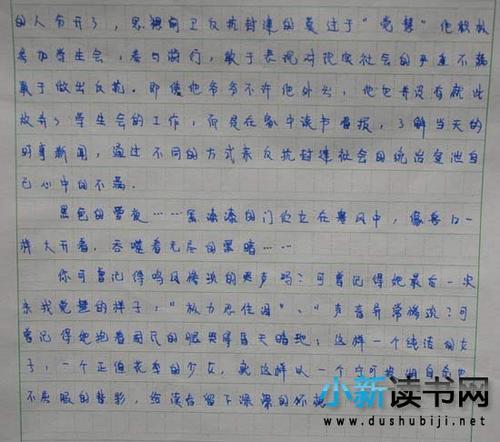 的人分开了，思想前卫反抗封建的莫过于“觉慧”他积极
参加学生会，参与游行，敢于表现对现实社会的严重不满
敢于做出反抗。即使他爷爷不许他外出，他也并没有就此
放弃了学生会的工作，而是在家中读书看报，了解当天的
时事新闻，通过不同的方式来反抗封建社会的统治发泄自
己心中的不满。
黑色的黑夜……黑漆漆的门伫立在寒风中，像兽口一
样大开着，吞噬着无尽的黑暗……
你可曾记得鸣凤凄凉的哭声吗？可曾记得她最后一次
来找觉慧的样子：“极力忍住泪”、“声音异常凄凉？可
曾记得她抱着国民的眼哭得昏天暗地；这样一个纯洁的女
子，一个正值花季的少女，就这样以一个宁可投湖自尽也
不屈服的背影，给读者留下深深的怀念
小新读书网
www.dushubiji.net